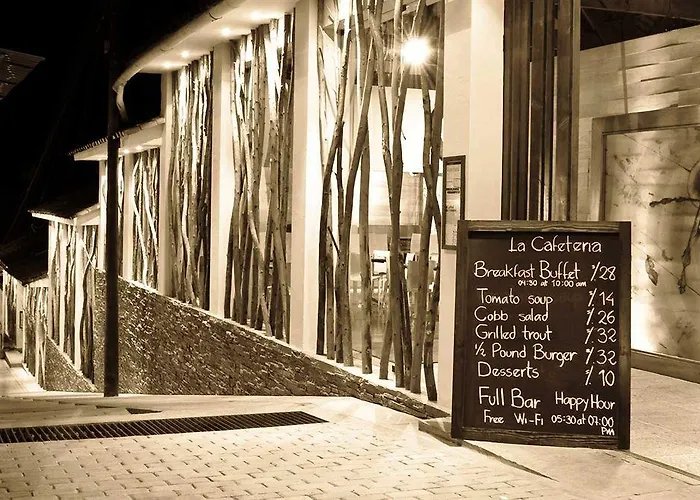 La Cafeteria
Breakfast Buffet $/28
04:30 at 10:00 am
Tomato soup $/14
Cobb salad $/26
Grilled trout $/32
½ Pound Burger $/32
Desserts $/10
Full Bar Happy Hour
Free Wi-Fi 05:30 at 07:00
PM